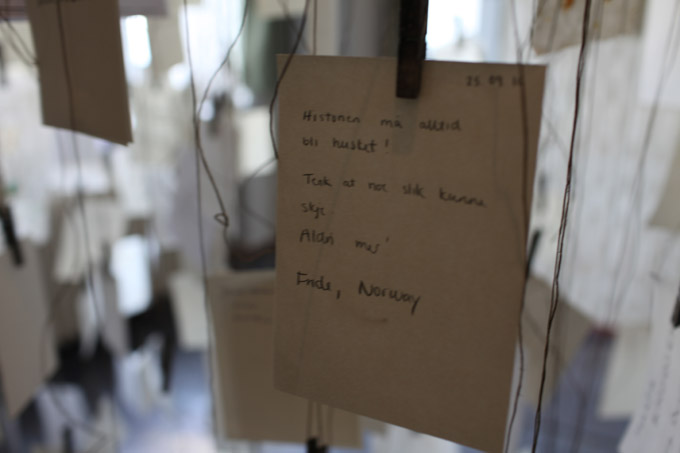 25.09
Historien må alltid
bli husket!
Tenk at noe slik kunne
skje
Aldri mer!
Norway